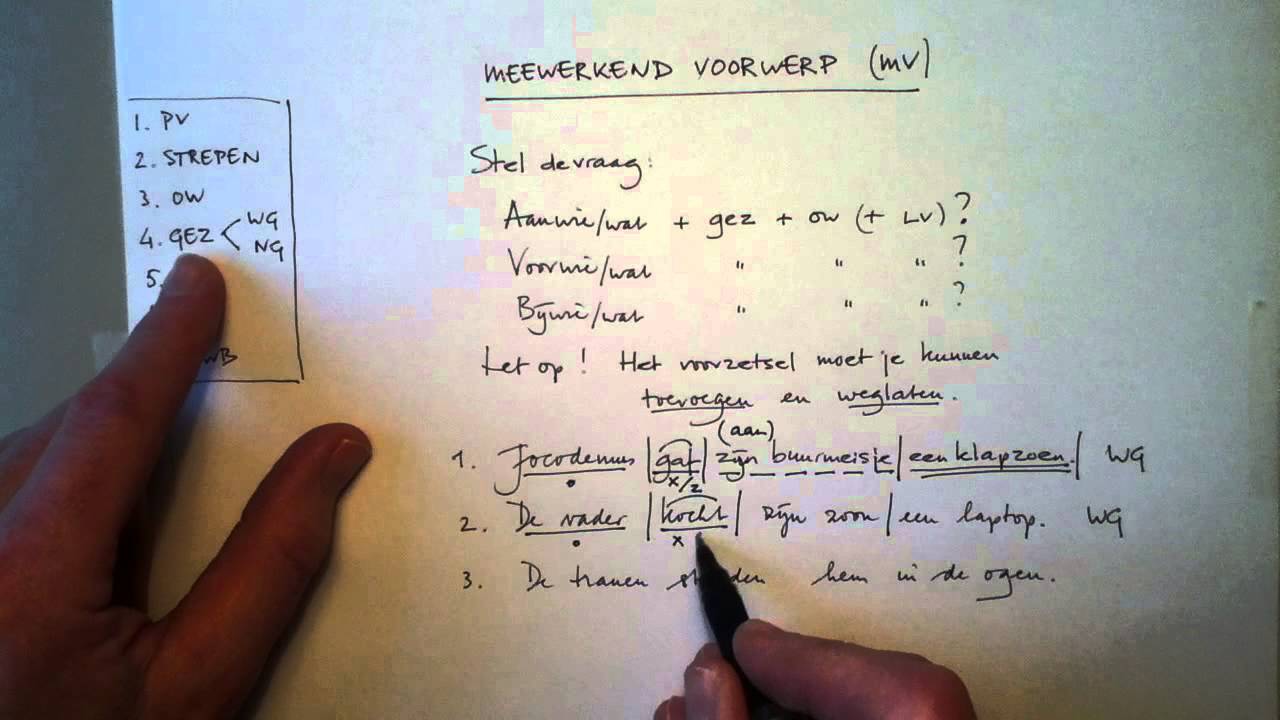 MEEWERKEND VOORWERP (MV)
1. PV
2. STREPEN
3. OW
4. GEZ < WG
NG
5.
WB
Stel de vraag:
Aan wie/wat + gez + ow (+ LV)?
Voor wie/wat " " " ?
Bij wie/wat " " " ?
Let op! Het voorzetsel moet je kunnen
toevoegen en weglaten.
(aan)
1. Jocodemus |gaf| zijn buurmeisje | een klapzoen. | WG
x/2
2. De vader | kocht | zijn zoon | een laptop. WG
x
3. De tranen hem in de ogen.